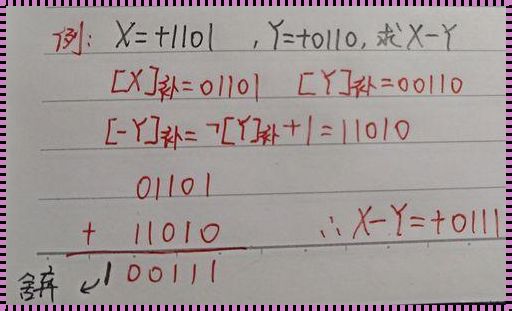 例: X=+1101 , Y=+0110, 求X-Y
[X]补=01101 [Y]补=00110
[-Y]补=¬[Y]补+1=11010
01101
+ 11010 ∴ X-Y=+0111
舍弃 ↙100111